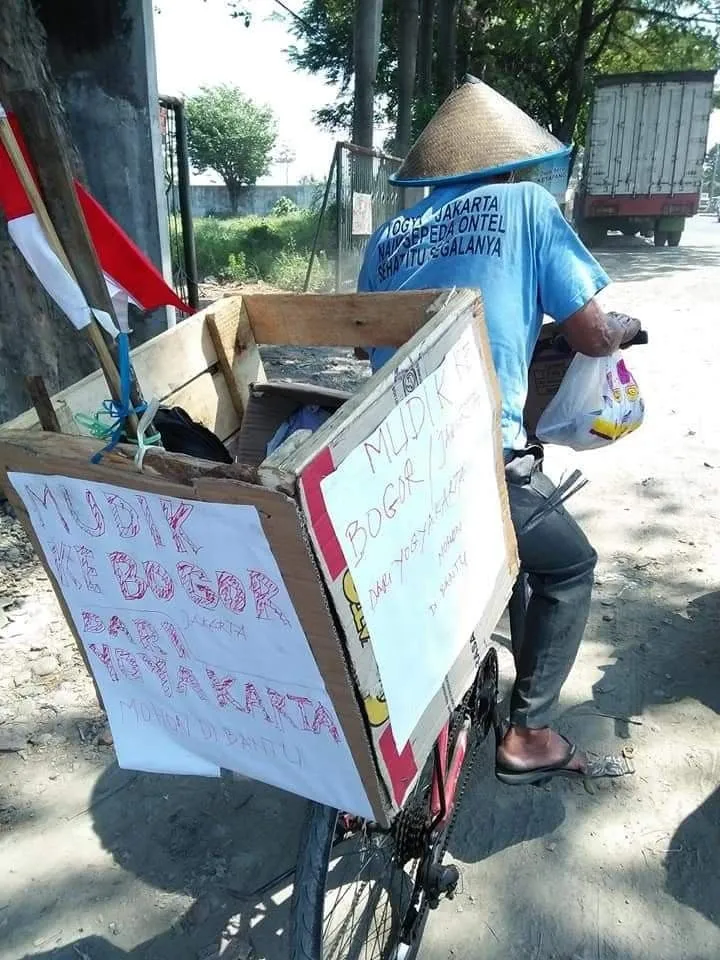 YOGYAKARTA
NAIK SEPEDA ONTEL
SEHAT ITU SEGALANYA
MUDIK
KE BOGOR
JAKARTA
DARI
YOGYAKARTA
MOHON DI BANTU
MUDIK KE
BOGOR / JAKARTA
DARI YOGYAKARTA
MOHON
DI BANTU